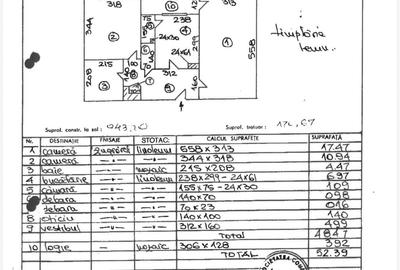 318
238
313
344
299
558
24x61
215
312
208
160
tîmplărie
lemn
Supraf. constr. la sol: 943,20
Supraf. tratuar: 172,67
Nr. DESTINAŢIE FINISAJE STOTAC. CALCUL SUPRAFEŢE SUPRAFAŢĂ
1 cameră zugrăvit linoleum 558 x 313 17.47
2 cameră —"— —"— 344 x 318 10.94
3 baie —"— mozaic 215 x 208 4.47
4 bucătărie —"— linoleum 238 x 299 - 24 x 61 6.97
5 cămară —"— —"— 155 x 76 - 24x30 1.09
6 debara —"— —"— 140 x 70 098
7 debara —"— —"— 70 x 23 016
8 oficiu —"— —"— 140 x 100 1.40
9 vestibul —"— —"— 312 x 160 4.99
Total 48.47
10 logie —"— mozaic 306 x 128 3.92
TOTAL 52.39